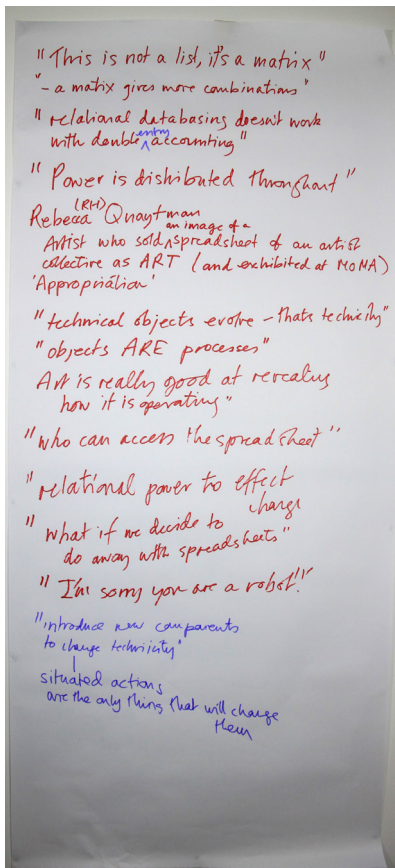 "This is not a list, it's a matrix"
"- a matrix gives more combinations"
"relational databasing doesn't work
with double entry accounting"
"Power is distributed throughout"
Rebecca (RH) Quaytman
Artist who sold an image of a spreadsheet of an artist
collective as ART (and exhibited at MoMA)
'Appropriation'
"technical objects evolve - thats technicity"
"objects ARE processes"
Art is really good at revealing
how it is operating"
"who can access the spreadsheet"
"relational power to effect
change
"what if we decide to
do away with spreadsheets"
"I'm sorry you are a robot!"
"introduce new components
to change technicity"
situated actions
are the only thing that will change
them